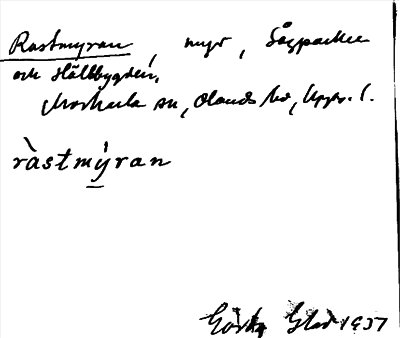 Rastmyran, myr, Sågparken
och Hällbygden,
Morkarla sn, Olands hd, Upps. l.
ràstmýran
Gösta Glad 1937